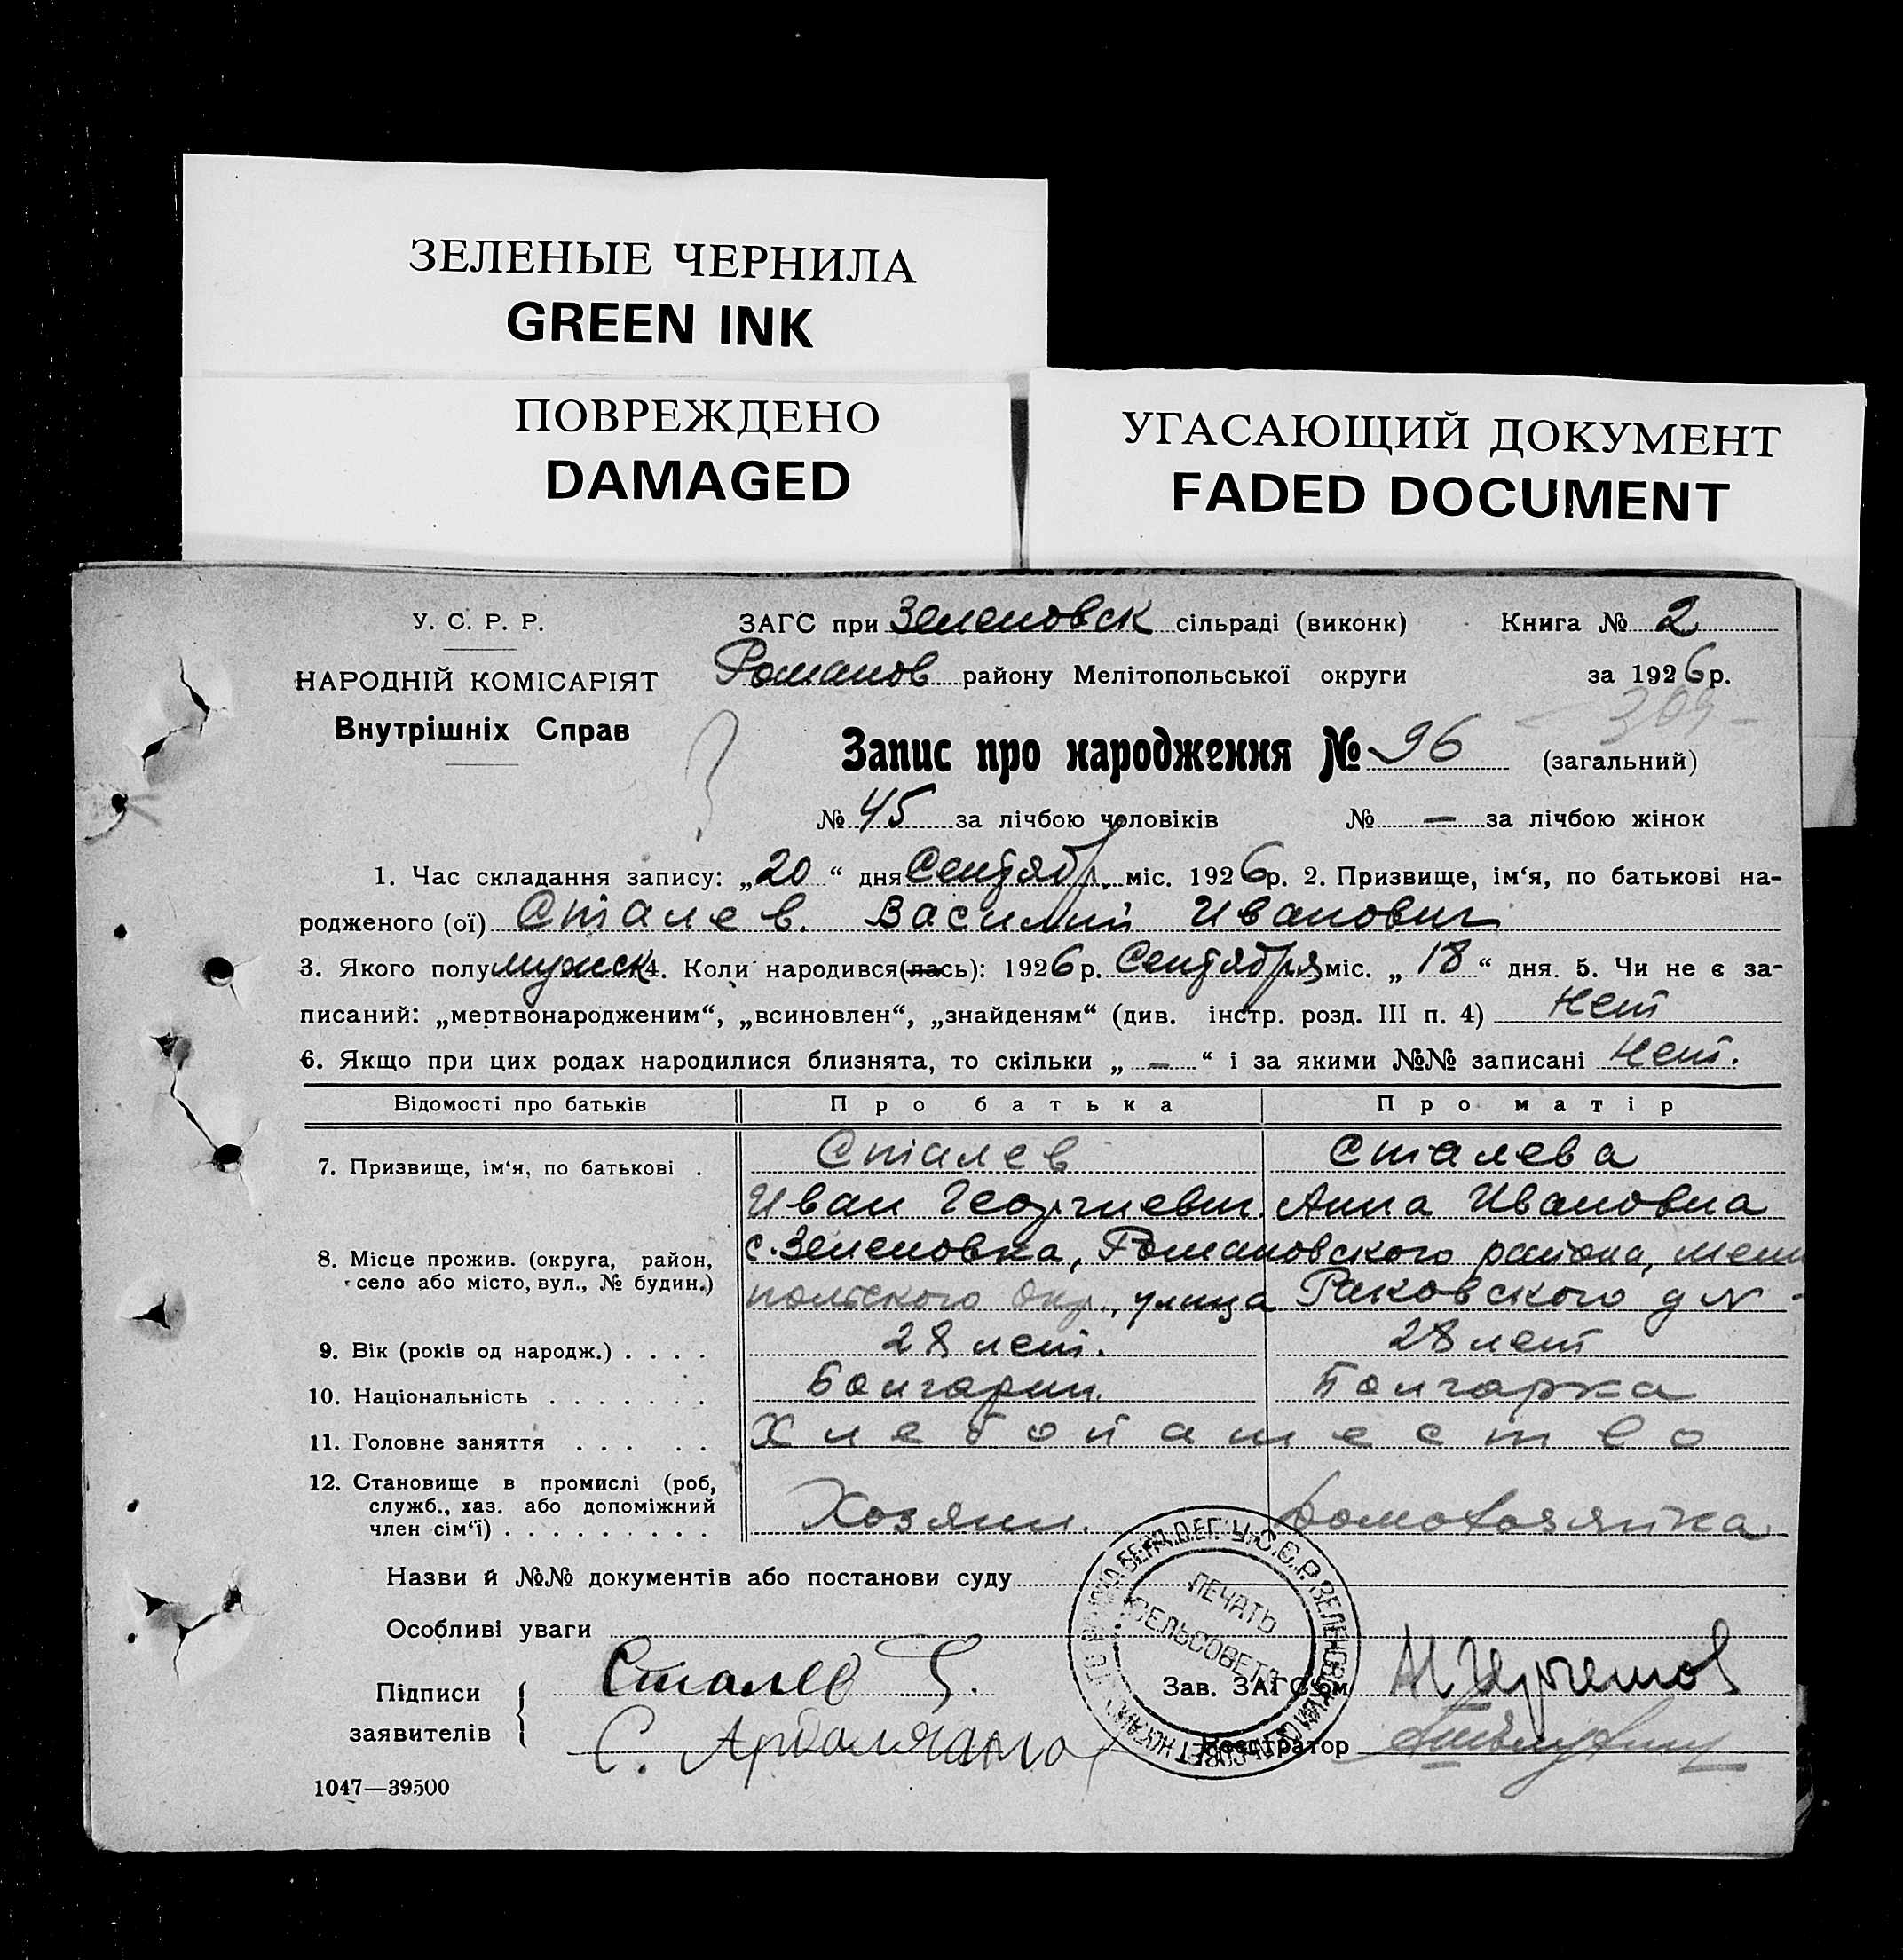 ЗЕЛЕНЫЕ ЧЕРНИЛА
GREEN INK
ПОВРЕЖДЕНО
DAMAGED
УГАСАЮЩИЙ ДОКУМЕНТ
FADED DOCUMENT
У. С. Р. Р.
НАРОДНІЙ КОМІСАРІЯТ
Внутрішніх Справ
ЗАГС при Зеленовск сільраді (виконк) Книга № 2
Романов району Мелітопольської округи за 1926 р.
Запис про народження № 96 (загальний)
№ 45 за лічбою чоловіків № — за лічбою жінок
1. Час складання запису: „20“ дня Сентябр. міс. 1926р. 2. Призвище, ім‘я, по батькові на-
родженого (ої) Сталев. Василий Иванович
3. Якого полу мужск 4. Коли народився(лась): 1926 р. Сентября міс. „18“ дня. 5. Чи не є за-
писаний: „мертвонародженим“, „всиновлен“, „знайденям“ (див. інстр. розд. III п. 4) Нет
6. Якщо при цих родах народилися близнята, то скільки „—“ і за якими №№ записані Нет.
Відомості про батьків Про батька Про матір
7. Призвище, ім‘я, по батькові . Сталев Сталева
Иван Георгиевич. Анна Ивановна
8. Місце прожив. (округа, район, с. Зеленовка, Романовского района, Мели
село або місто, вул., № будин.) польского Окр., улица Раковского д № -
9. Вік (років од народж.) . . . . 28 лет. 28 лет
10. Національність . . . . . . . Болгарин. Болгарка
11. Головне заняття . . . . . Хлебопашество
12. Становище в промислі (роб,
служб., хаз. або допоміжний
член сім‘ї) . . . . . . . . . Хозяин. Домохозяйка
Назви й №№ документів або постанови суду
ПЕЧАТЬ
СЕЛЬСОВЕТА
Особливі уваги
Підписи
заявителів
Сталев
С.
Зав. ЗАГС‘ом
Реєстратор
1047—39500